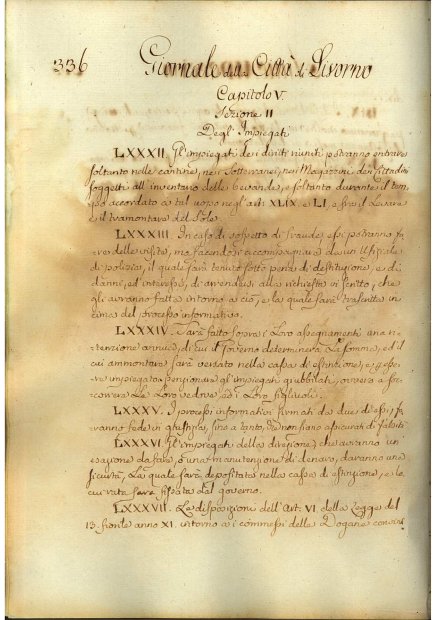 336 Giornale della Città di Livorno
Capitolo V.
Sezione II
Degl' Impiegati
LXXXII. Gl'impiegati dei diritti riuniti potranno entrare
soltanto nelle cantine, nei Sotterranei, nei Magazzini dei Cittadini
soggetti all'inventario delle bevande, e soltanto durante il tem-
po accordato a tal uopo negl'arti XLIX. e LI, e fra il Levare
e il tramontare del Sole.
LXXXIII. In caso di sospetto di fraude essi potranno fa-
re delle visite, ma facendosi accompagnare da un Uffiziale
di polizia, il quale sarà tenuto sotto pena di destituzione, e di
danni, ed interessi, di arrendersi alla richiesta in scritto, che
gli avranno fatta intorno a ciò, e la quale sarà trascritta in
cima del processo informativo.
LXXXIV. Sarà fatto sopra i Loro assegnamenti una ri-
tenzione annua, di cui il Governo determinerà La somma, ed il
cui ammontare sarà versato nella cassa di estinzione, e
impiegato a pensionare gl'impiegati giubbilati, ovvero a soc-
correre Le Loro vedove, ed i Loro figliuoli.
LXXXV. I processi informativi firmati da due di essi, fa-
ranno fede in giustizia, sino a tanto, che non siano accusati di falsità
LXXXVI. Gl'impiegati della direzione, che avranno un'
esazione da fare, o una manutenzione di denaro, daranno una
sicurtà, La quale sarà depositata nella cassa di estinzione, e la
cui rata sarà fissata dal governo.
LXXXVII. Le disposizioni dell'Art. VI. della Legge del
13. fiorile anno XI. intorno a i commessi delle Dogane